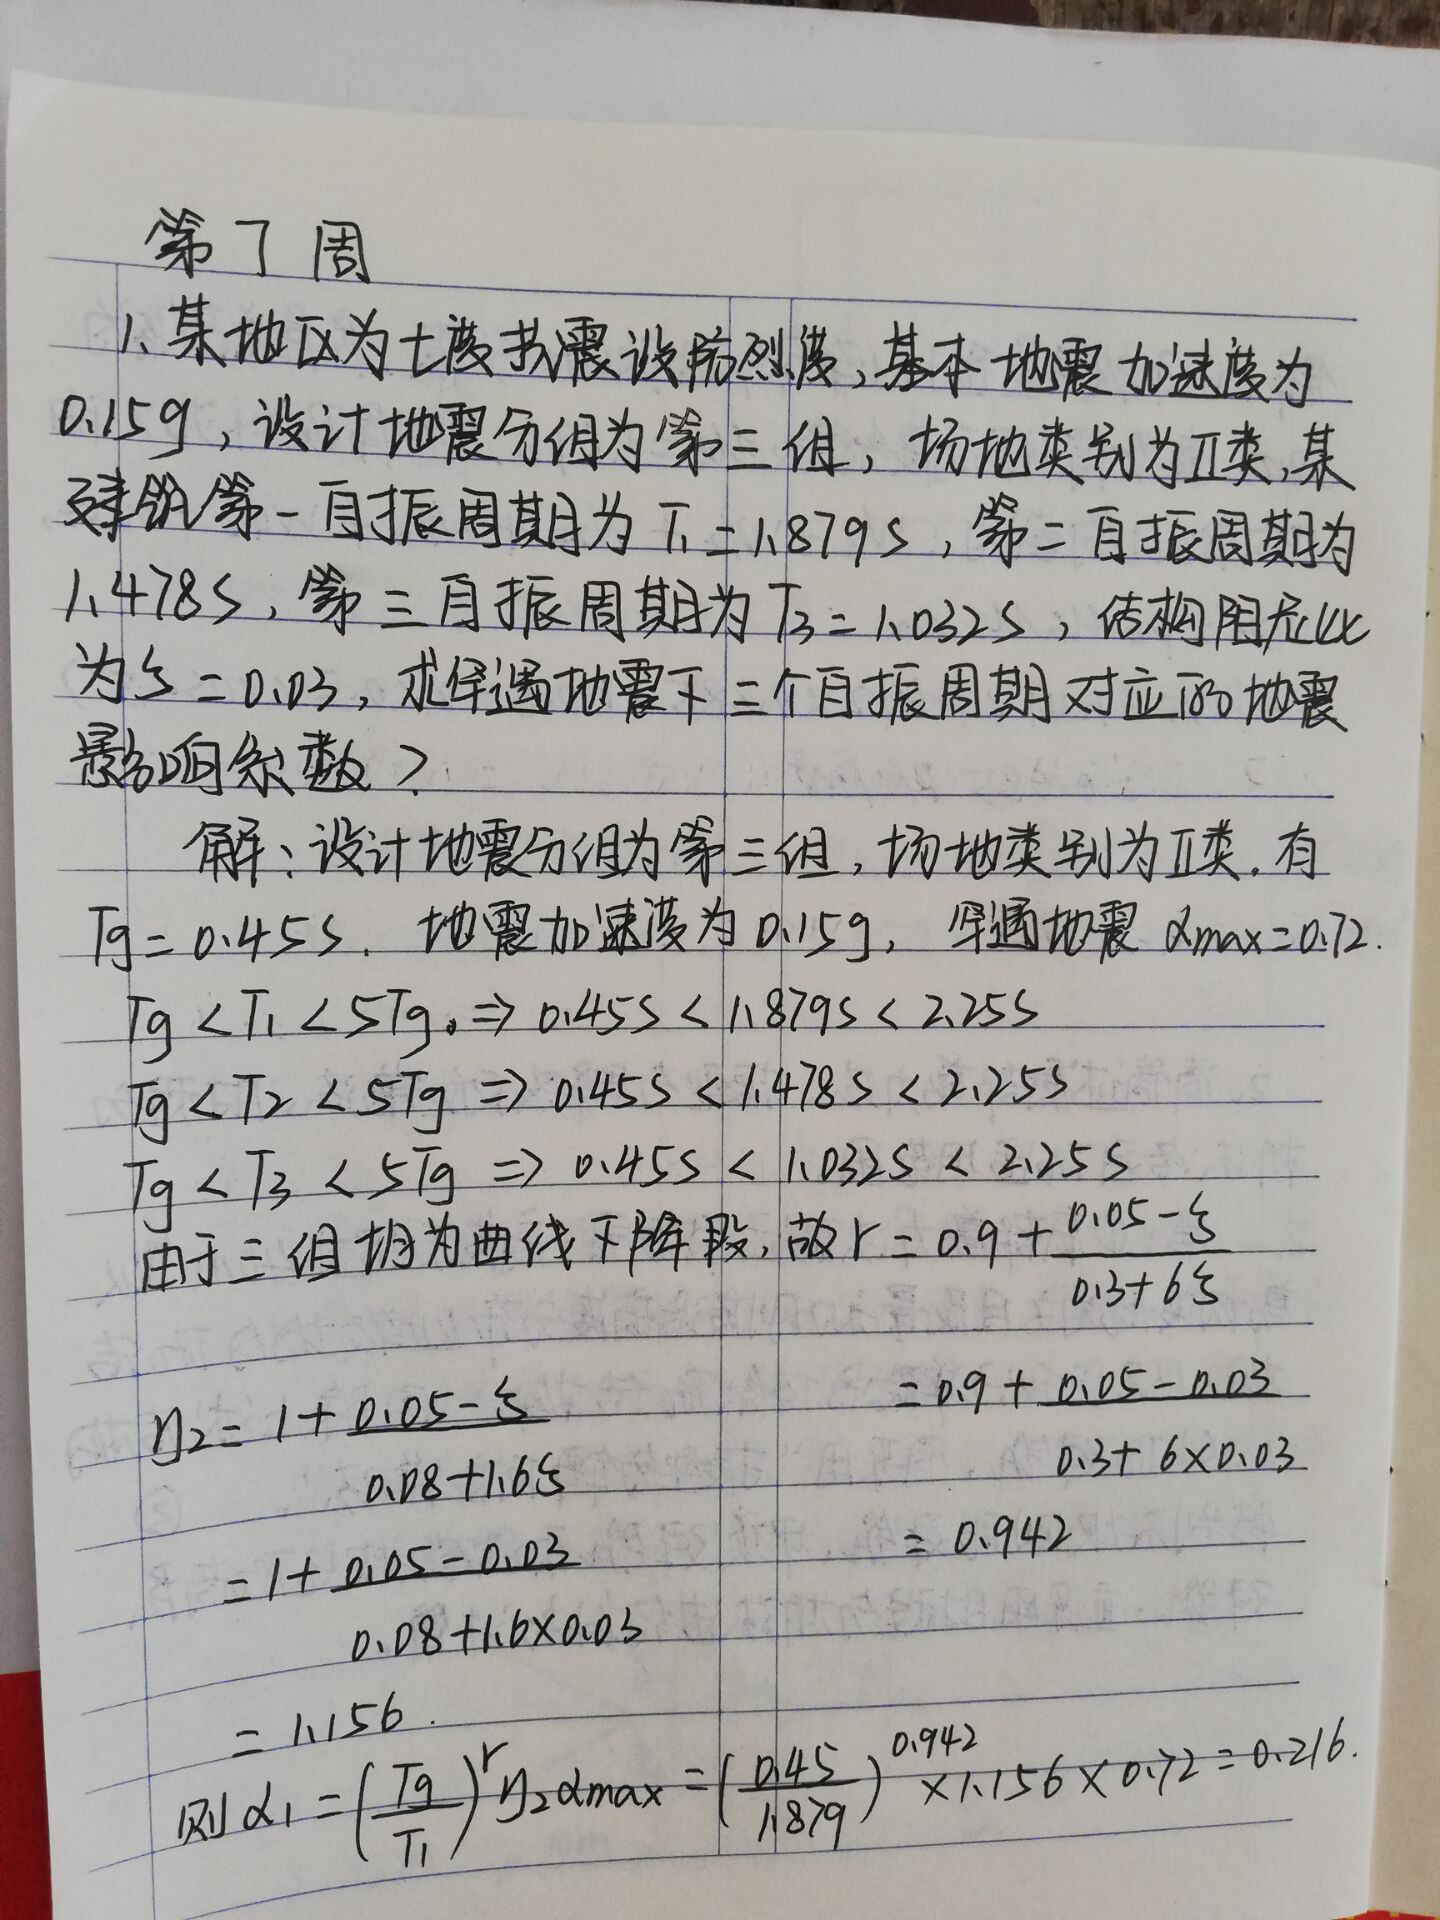 第7周
1、某地区为七度抗震设防烈度,基本地震加速度为
0.15g,设计地震分组为第三组,场地类别为Ⅱ类,某
建筑第一自振周期为 T₁=1.879s,第二自振周期为
1.478s,第三自振周期为T₃=1.032s,结构阻尼比
为ξ=0.03,求罕遇地震下三个自振周期对应的地震
影响系数?
解:设计地震分组为第三组,场地类别为Ⅱ类.有
Tg=0.45s. 地震加速度为0.15g, 罕遇地震 αmax=0.72.
Tg<T₁<5Tg.⇒0.45s<1.879s<2.25s
Tg<T₂<5Tg⇒0.45s<1.478s<2.25s
Tg<T₃<5Tg⇒0.45s<1.032s<2.25s
由于三组均为曲线下降段,故r=0.9+(0.05-ξ)/(0.3+6ξ)
=0.9+(0.05-0.03)/(0.3+6×0.03)
=0.942
η₂=1+(0.05-ξ)/(0.08+1.6ξ)
=1+(0.05-0.03)/(0.08+1.6×0.03)
=1.156.
则α₁=(Tg/T₁)^r η₂αmax=(0.45/1.879)^0.942×1.156×0.72=0.216.